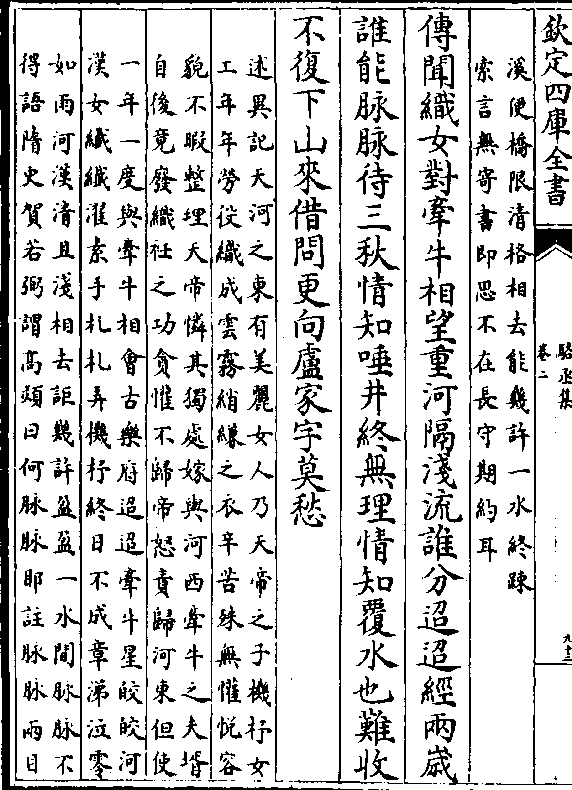 欽定四庫全書
駱丞集
卷二
九十三
溪使橋限清格相去能幾許一水終踈
索言無寄書即思不在長守期約耳
傳聞織女對牽牛相望重河隔淺流誰分迢迢經兩歲
誰能脉脉待三秋情知唾井終無理情知覆水也難收
不復下山來借問更向盧家字莫愁
述異記天河之東有美麗女人乃天帝之子機杼女
工年年勞役織成雲霧綃縑之衣辛苦殊無懽悅容
貌不暇整理天帝憐其獨處嫁與河西牽牛之夫壻
自後竟廢織紝之功貪懽不歸帝怒責歸河東但使
一年一度與牽牛相會古樂府迢迢牽牛星皎皎河
漢女纖纖濯素手札札弄機杼終日不成章涕泣零
如雨河漢清且淺相去詎幾許盆盈一水間脉脉不
得語隋史賀若弼謂高熲曰何脉脉耶註脉脉兩目